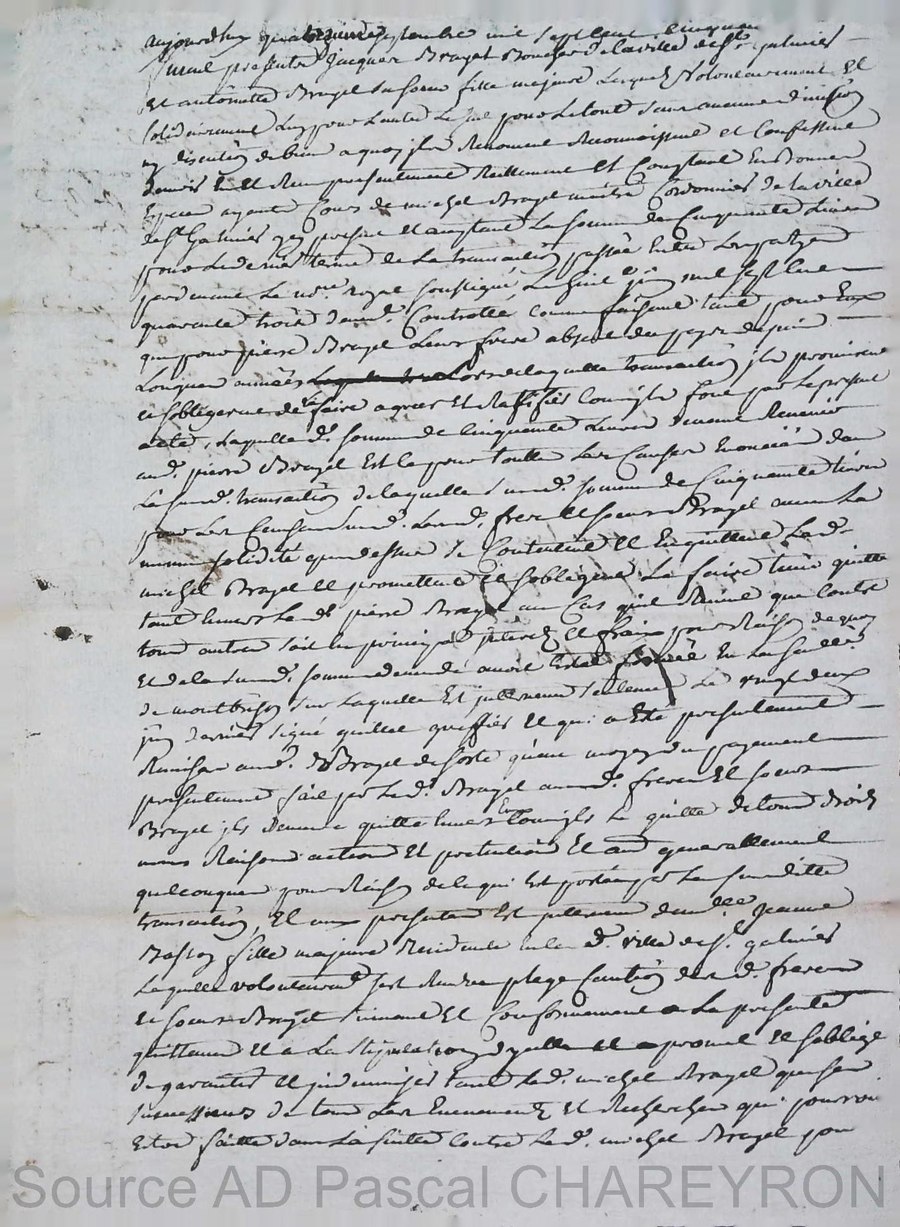 aujourd'huy quatorzieme septembre mil sept cent cinquante
furent presents Jacques Brazet Boucher de la ville de st galmier
Et antoinette Brazet sa soeur fille majeure Lesquels volontairement Et
solidairement L'un pour L'autre Le seul pour Le tout sans aucune division
ny discution de bien a quoy ils Renoncent Reconnoissent et Confessent
avoir Eu Et Receu presentement Reellement Et Comptant En bonnes
Especes ayants Cours de michel Brazet maitre Cordonnier de la ville
de st Galmier icy present et acceptant La somme de Cinquante Livres
pour Le dernier terme de La transaction passée Entre Les parties
pardevant Le nore royal soussigné Le huit juin mil sept cent
quarante trois d'umt Controllée comme faisant tant pour Eux
que pour pierre Brazet Leur frere absent du pays depuis
Longues années lors de laquelle transaction ils promirent
et s'obligerent de faire agreer Et Ratiffier Comme ils font par Le present
acte, Laquelle de somme de cinquante Livres venant Revenir
aud. pierre Brazet Est Ce pour toutte Les Causes Enoncées dans
La sud. transaction de laquelle sud. somme de Cinquante Livres
pour Les Causes sud. Lesd. frere Et soeur Brazet avec La
meme solidité que dessus se Contentent Et En quittent Led.
michel Brazet Et promettent Et s'obligent Le faire tenir quitte
tant Envers Led. pierre Brazet au Cas qu'il Revint que Contre
tous autres soit En principal interets Et frais pour Raison de quoy
Et de la sud. somme de
de montbrison sur Laquelle Est intervenue sentence Le vingt deux
juin dernier signé quittes greffier Et qui a Eté presentement
Remise aud. Brazet de sorte qu'au moyen du payement
presentement fait par Led. Brazet auxd. freres Et soeur
Brazet ils Demeure quitte Envers Eux Comme ils Le quitte de tous droits
noms Raisons actions Et pretentions Et generallement
quelconques pour Raison de ce qui Est porté par La susditte
transaction, Et aux presentes Est intervenue demlle Jeanne
fille majeure Residente En la d. ville de st galmier
Laquelle volontairemt s'est Rendue plege Caution desd. freres
Et soeur Brazet suivant Et Conformement a La presente
quittance Et a La stipulation d'ycelle Et a promis Et s'obblige
de garantir Et indemniser tant Led. michel Brazet que ses
successeurs de tous Les Evenements Et Recherches qui pourroi
Etre faitte dans La suitte Contre Led. michel Brazet pour
Source AD Pascal CHAREYRON